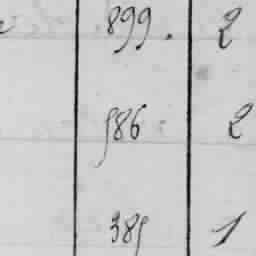 899. 2
586 2
385 1